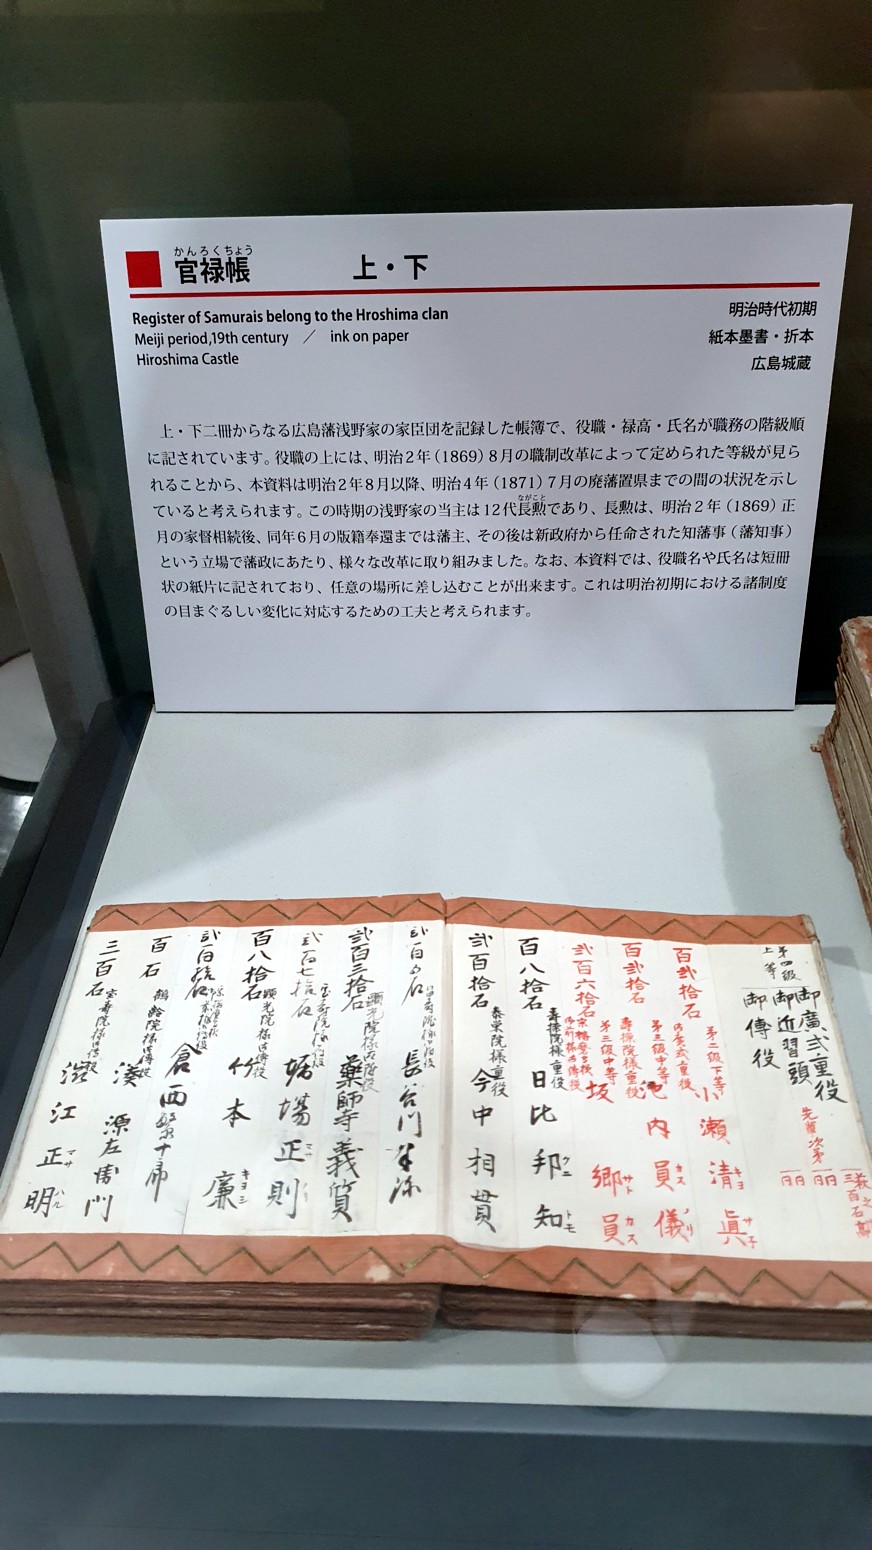 かんろくちょう
官禄帳 上・下
Register of Samurais belong to the Hroshima clan
Meiji period,19th century ／ ink on paper
Hiroshima Castle
明治時代初期
紙本墨書・折本
広島城蔵
上・下二冊からなる広島藩浅野家の家臣団を記録した帳簿で、役職・禄高・氏名が職務の階級順
に記されています。役職の上には、明治２年（1869）８月の職制改革によって定められた等級が見ら
れることから、本資料は明治２年８月以降、明治４年（1871）７月の廃藩置県までの間の状況を示し
ていると考えられます。この時期の浅野家の当主は12代長勲であり、長勲は、明治２年（1869）正
ながこと
月の家督相続後、同年６月の版籍奉還までは藩主、その後は新政府から任命された知藩事（藩知事）
という立場で藩政にあたり、様々な改革に取り組みました。なお、本資料では、役職名や氏名は短冊
状の紙片に記されており、任意の場所に差し込むことが出来ます。これは明治初期における諸制度
の目まぐるしい変化に対応するための工夫と考えられます。
第四級
上等
御廣式重役
御近習頭
御傳役
先首次第
三百石高
第二級下等
小瀬清眞
キヨ サ子
百弐拾石
第三級中等
池内員儀
カス ノリ
百弐拾石
壽操院様重役
第三級中等
坂郷員
サト カス
弐百六拾石
百八拾石
壽操院様重役
日比邦知
クニ トモ
弐百拾石
泰栄院様重役
今中相貫
長谷川
弐百三拾石
顕光院様
藥師寺義質
弐百七拾石
堀場正則
マサ ノリ
百八拾石
顕光院様
竹本廉
キヨシ
百石
鶴齢院様
湊源左衛門
三百石
澁江正明
マサ ハル